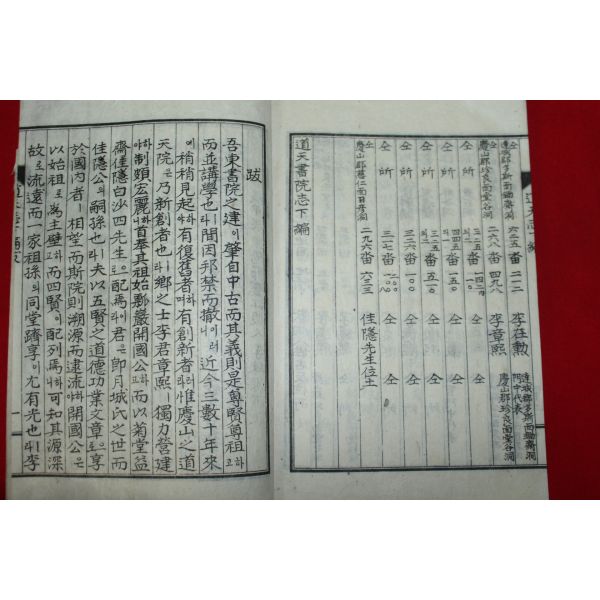 達城郡多斯面 六二五 畓 二一二 李在勳
慶山郡珍良面堂谷洞 二六八 畓 四九八 李章熙 門中代表 慶山郡珍良面堂谷洞
仝 所 三二五 畓 仝 仝
仝 所 畓 一五〇 仝 仝
仝 所 三二六 畓 一〇〇 仝 仝
仝 所 三一七 畓 仝 仝
慶山郡 二九六 畓 六三三 佳隱先生位土
道天書院志下編
跋
吾東書院之建이肇自中古而其義則是尊賢尊祖하고
而並講學也라間因邦禁而撤이러니近今三數十年來
에稍稍見起하야有復舊者하며有創新者하니惟慶山之道
天院은乃新創者也라鄕之士李君章熙ㅣ獨力營建
하야制頗宏麗하니首奉其祖始嚴開國公하고而以菊堂益
齋佳隱白沙四先生으로配焉이라君은卽月城氏之世而
佳隱公의嗣孫也라夫以五賢之道德功業文章으로享
於國內者ㅣ相望而斯院則溯源而逮流하야開國公은
以始祖로爲主壁하고而四賢이配列焉하니可知其源深
故로流遠而一家祖孫의同堂躋享이尤有光也라李